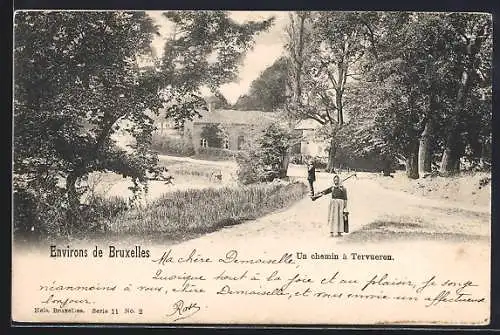 Environs de Bruxelles
Un chemin à Tervueren.
Ma chère Demoiselle,
Quoique tout à la joie et au plaisir, je songe
néanmoins à vous, chère Demoiselle, et vous envoie un affectueux
bonjour.
Nels, Bruxelles. Serie 11 No. 2